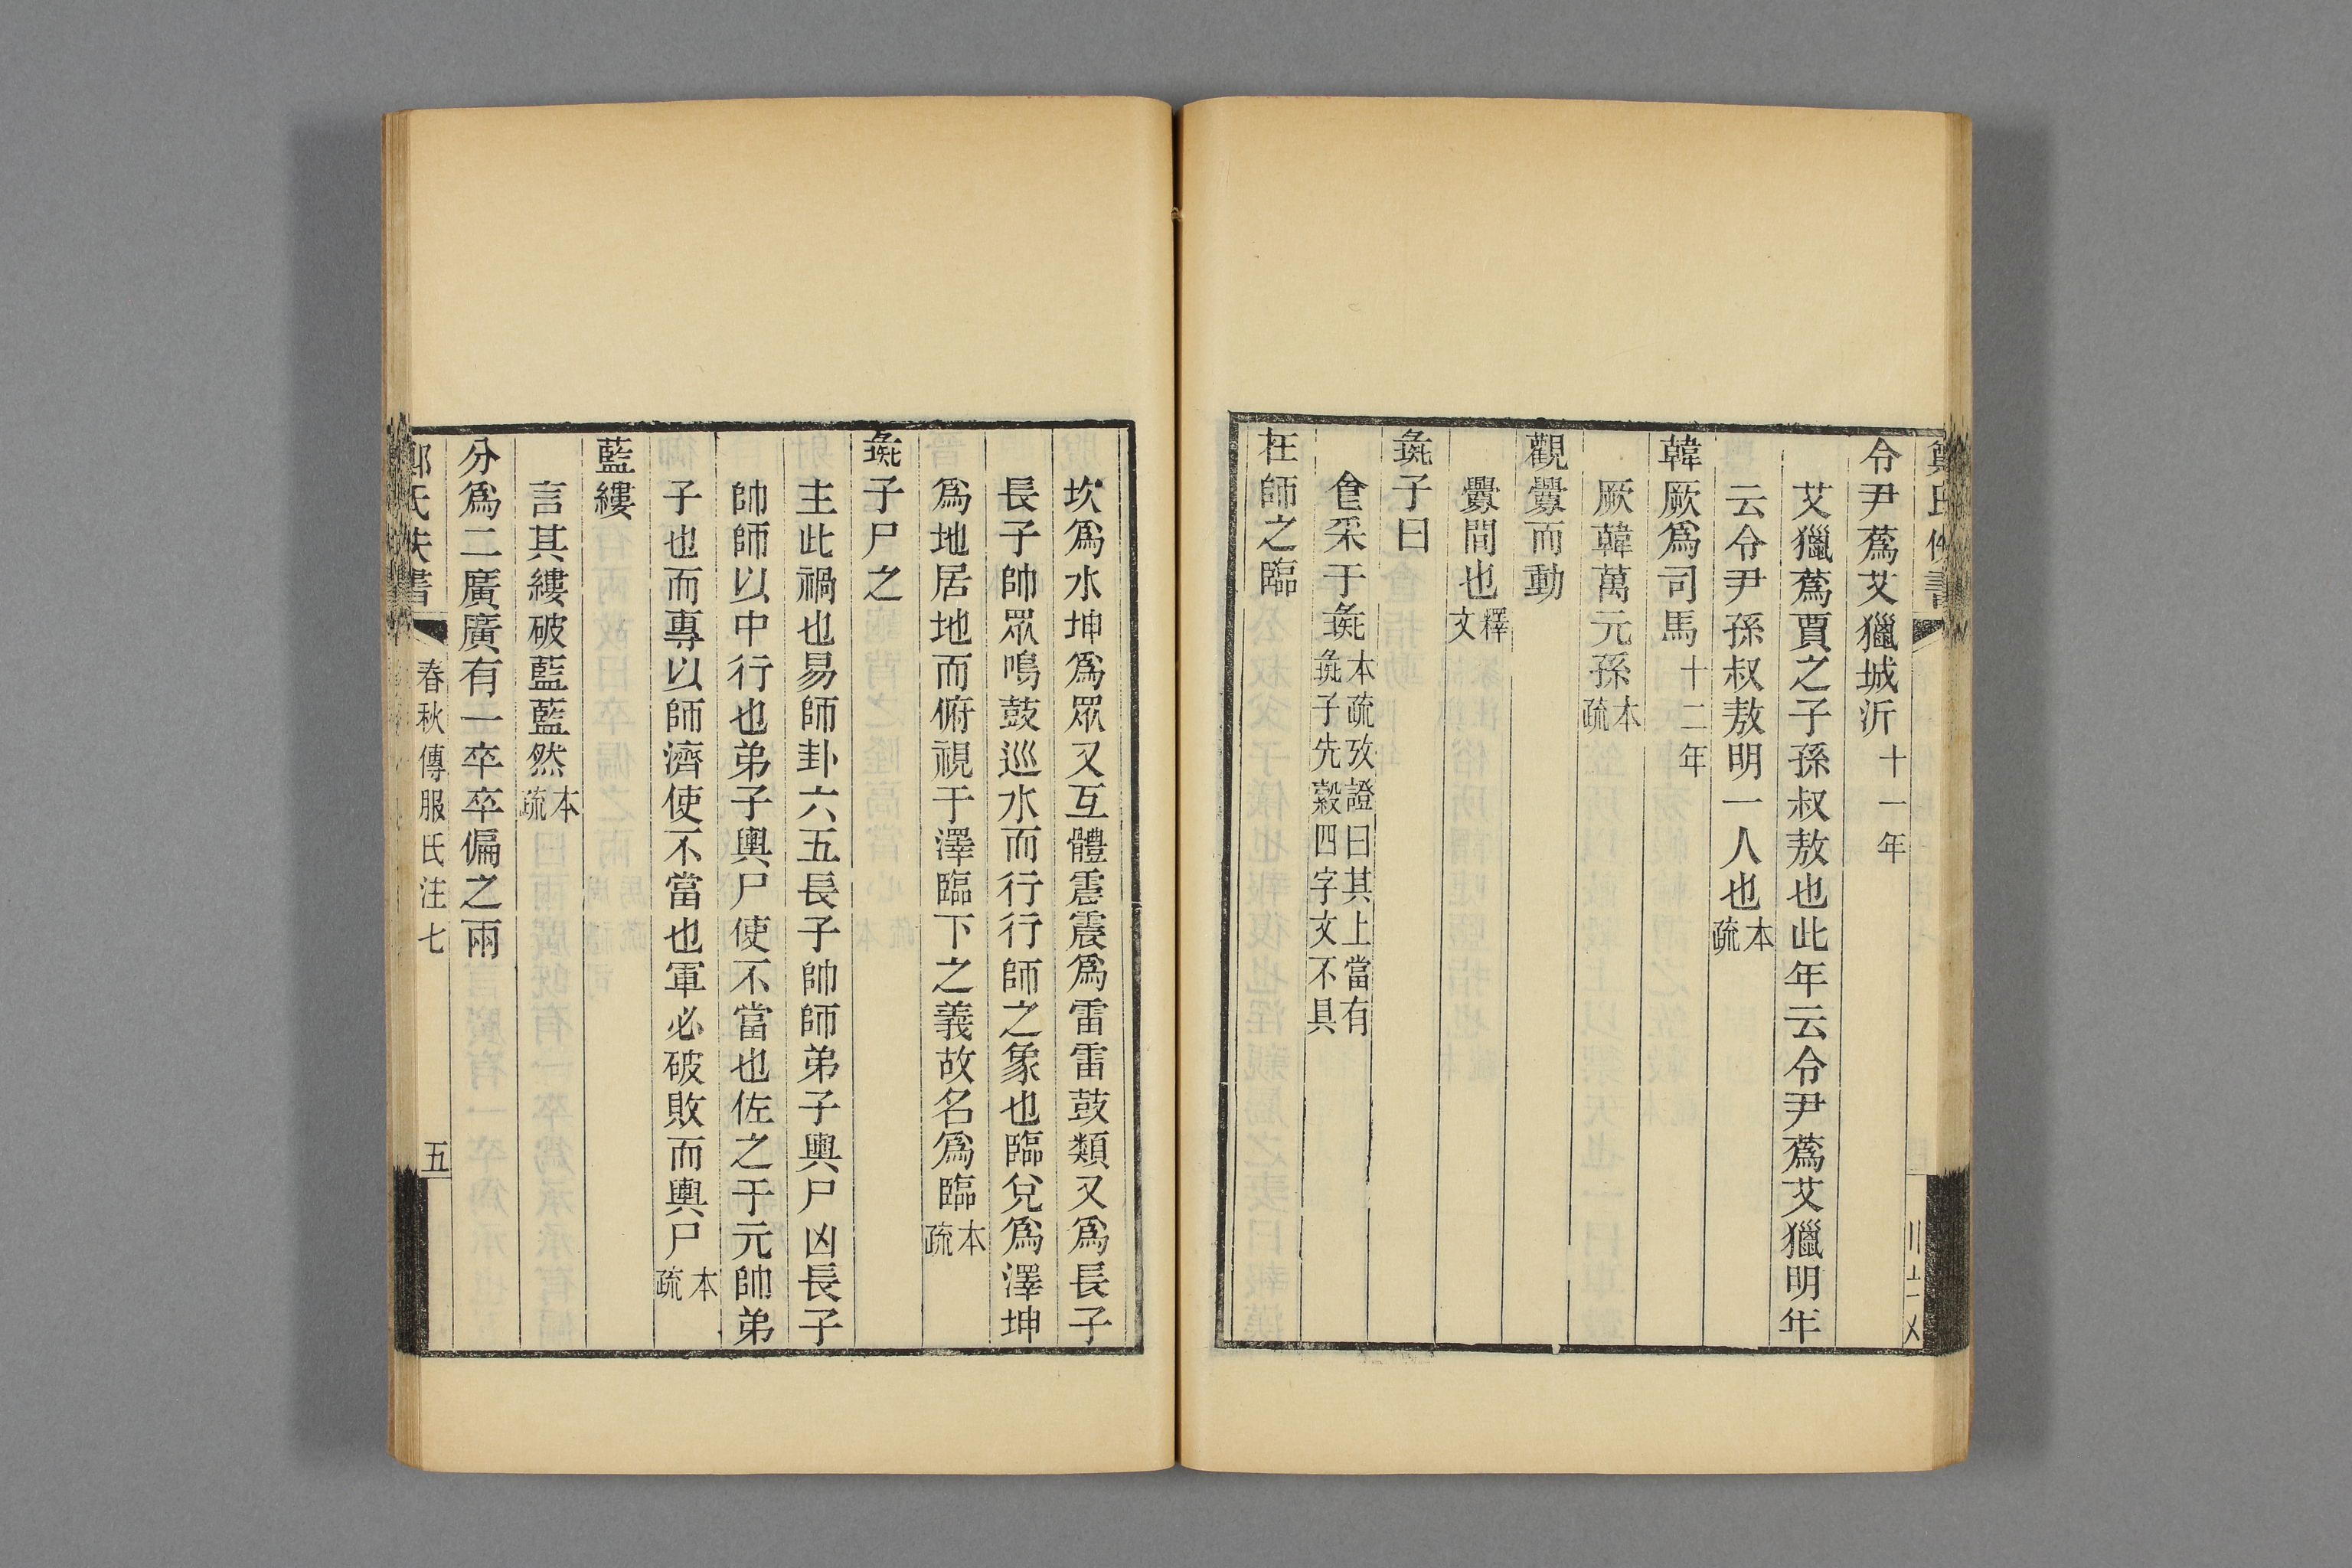 令尹蒍艾獵城沂十一年
艾獵蒍賈之子孫叔敖也此年云令尹蒍艾獵明年
云令尹孫叔敖明一人也本疏
韓厥爲司馬十二年
厥韓萬元孫本疏
觀釁而動
釁間也釋文
彘子曰
食采于彘本疏攷證曰其上當有彘子先縠四字文不具
在師之臨
坎爲水坤爲眾又互體震震爲雷雷鼓類又爲長子
長子帥眾鳴鼓巡水而行行師之象也臨兌爲澤坤
爲地居地而俯視于澤臨下之義故名爲臨本疏
彘子尸之
主此禍也易師卦六五長子帥師弟子輿尸凶長子
帥師以中行也弟子輿尸使不當也佐之于元帥弟
子也而專以師濟使不當也軍必破敗而輿尸本疏
藍縷
言其縷破藍藍然本疏
分爲二廣廣有一卒卒偏之兩
春秋傳服氏注七
五